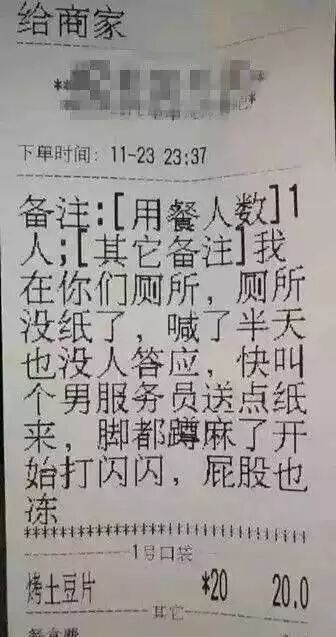 给商家
下单时间: 11-23 23:37
备注:[用餐人数]1
人;[其它备注]我
在你们厕所，厕所
没纸了，喊了半天
也没人答应，快叫
个男服务员送点纸
来，脚都蹲麻了开
始打闪闪，屁股也
冻
1号口袋
烤土豆片 *20 20.0
其它